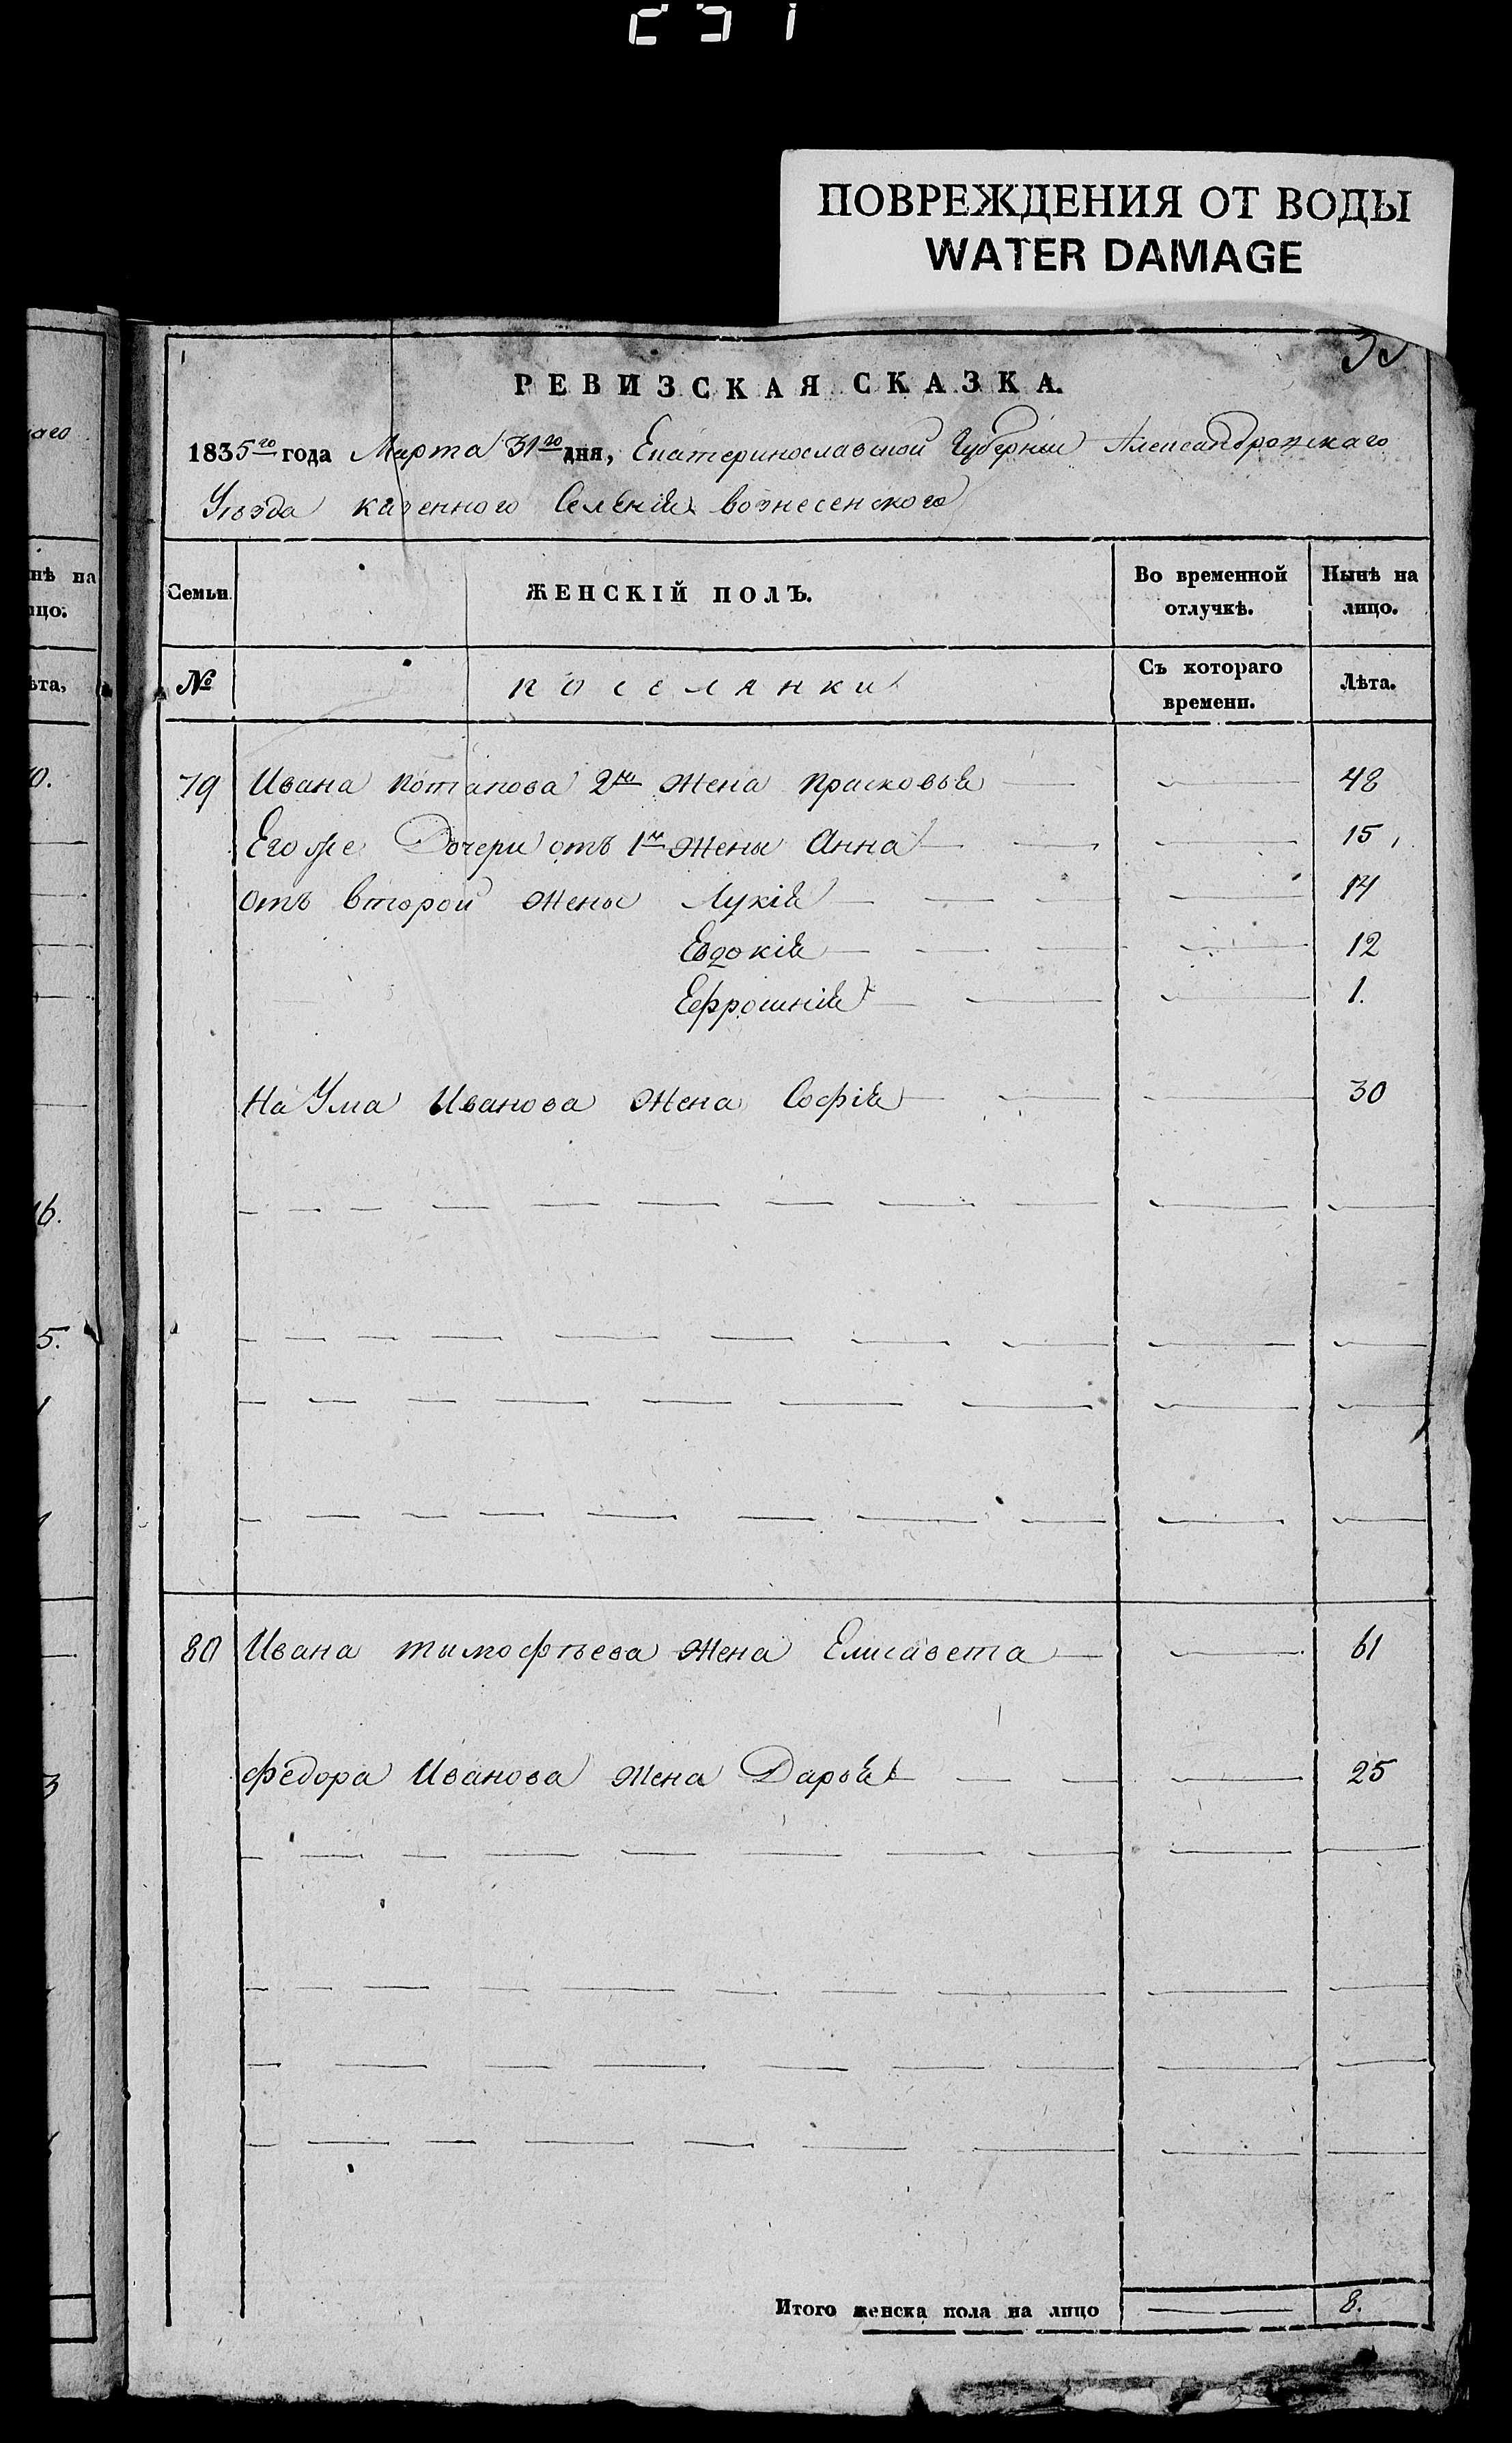 ПОВРЕЖДЕНИЯ ОТ ВОДЫ
WATER DAMAGE
РЕВИЗСКАЯ СКАЗКА.
1835го года Марта 31го дня, Екатеринославской Губерніи Александровскаго
Уѣзда казенного Селенія вознесенского
Семьи. ЖЕНСКІЙ ПОЛЪ. Во временной отлучкѣ. Нынѣ на лицо.
№ поселянки Съ котораго времени. Лѣта.
79 Ивана Потапова 2я жена Прасковья 48
Егоже Дочери отъ 1й жены Анна 15
отъ второй жены Лукія 14
Евдокія 12
Ефросинія 1.
НаУма Иванова жена Софія 30
80 Ивана тимофѣева жена Елисавета 61
Федора Иванова жена Дарья 25
Итого женска пола на лицо 8.